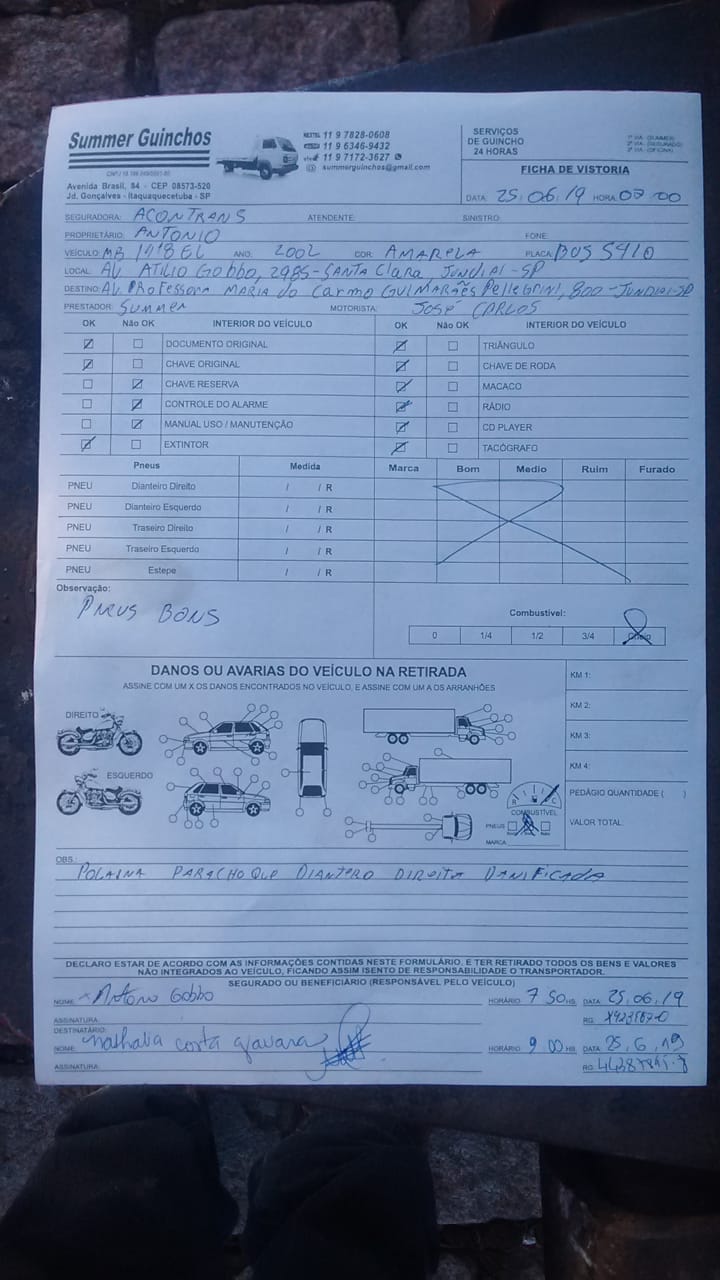 Summer Guinchos
11 9 7828-0608
11 9 6346-9432
11 9 7172-3627
summerguinchos@gmail.com
Avenida Brasil, 84 - CEP 08573-520
Jd. Gonçalves - Itaquaquecetuba - SP
SERVIÇOS
DE GUINCHO
24 HORAS
1ª VIA (SUMMER)
2ª VIA (SEGURADO)
3ª VIA (OFICINA)
FICHA DE VISTORIA
DATA: 25.06.19 HORA: 07:00
SEGURADORA: ACONTRANS ATENDENTE: SINISTRO:
PROPRIETÁRIO: ANTONIO FONE:
VEÍCULO: MB 1418 EL ANO: 2002 COR: AMARELA PLACA: BUS 5410
LOCAL: AV ATILIO GObbo, 2985-SANTA Clara JUNDIAI-SP
DESTINO: AV. PROFESSORA MARIA do Carmo GUIMARÃES Pellegrini, 800-JUNDIAI-SP
PRESTADOR: SUMMER MOTORISTA: JOSÉ CARLOS
OK Não OK INTERIOR DO VEÍCULO OK Não OK INTERIOR DO VEÍCULO
DOCUMENTO ORIGINAL TRIÂNGULO
CHAVE ORIGINAL CHAVE DE RODA
CHAVE RESERVA MACACO
CONTROLE DO ALARME RÁDIO
MANUAL USO / MANUTENÇÃO CD PLAYER
EXTINTOR TACÓGRAFO
Pneus Medida Marca Bom Medio Ruim Furado
PNEU Dianteiro Direito / / R
PNEU Dianteiro Esquerdo / / R
PNEU Traseiro Direito / / R
PNEU Traseiro Esquerdo / / R
PNEU Estepe / / R
Observação:
PNEUS BONS
Combustível:
0 1/4 1/2 3/4 Cheio
DANOS OU AVARIAS DO VEÍCULO NA RETIRADA
ASSINE COM UM X OS DANOS ENCONTRADOS NO VEÍCULO, E ASSINE COM UM A OS ARRANHÕES
DIREITO
ESQUERDO
KM 1:
KM 2:
KM 3:
KM 4:
PEDÁGIO QUANTIDADE ( )
VALOR TOTAL:
R C
COMBUSTÍVEL
PNEUS
MARCA
OBS.:
POLAINA PARACHOQUE DIANTERO DIREITA DANIFICADA
DECLARO ESTAR DE ACORDO COM AS INFORMAÇÕES CONTIDAS NESTE FORMULÁRIO, E TER RETIRADO TODOS OS BENS E VALORES
NÃO INTEGRADOS AO VEÍCULO, FICANDO ASSIM ISENTO DE RESPONSABILIDADE O TRANSPORTADOR.
SEGURADO OU BENEFICIÁRIO (RESPONSÁVEL PELO VEÍCULO)
NOME: Antonio Gobbo HORÁRIO 7 50 HS. DATA 25.06.19
ASSINATURA: RG:
DESTINATÁRIO:
NOME: nathalia costa HORÁRIO 9 00 HS. DATA 25.6.19
ASSINATURA: RG: